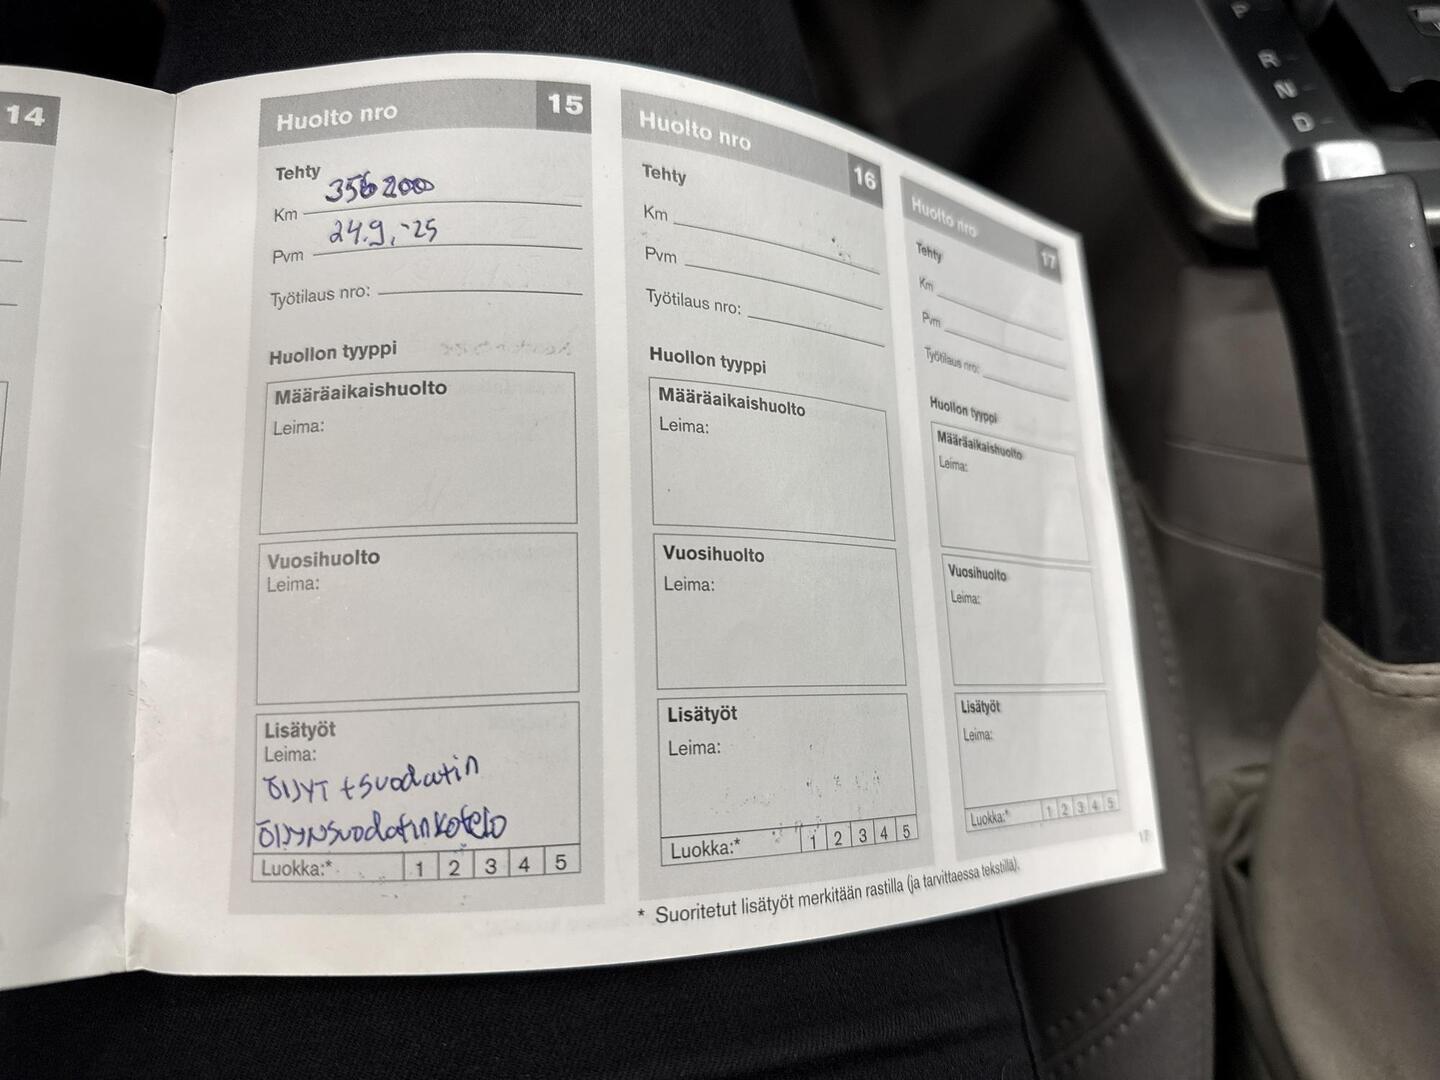 14
Huolto nro 15
Tehty
Km 356200
Pvm 24.9.-25
Työtilaus nro:
Huollon tyyppi
Määräaikaishuolto
Leima:
Vuosihuolto
Leima:
Lisätyöt
Leima:
ÖljyT + suodatin
Öljynsuodatinkotelo
Luokka:* 1 2 3 4 5
Huolto nro 16
Tehty
Km
Pvm
Työtilaus nro:
Huollon tyyppi
Määräaikaishuolto
Leima:
Vuosihuolto
Leima:
Lisätyöt
Leima:
Luokka:* 1 2 3 4 5
Huolto nro 17
Tehty
Km
Pvm
Työtilaus nro:
Huollon tyyppi
Määräaikaishuolto
Leima:
Vuosihuolto
Leima:
Lisätyöt
Leima:
Luokka:* 1 2 3 4 5
* Suoritetut lisätyöt merkitään rastilla (ja tarvittaessa tekstillä).
P
R
N
D